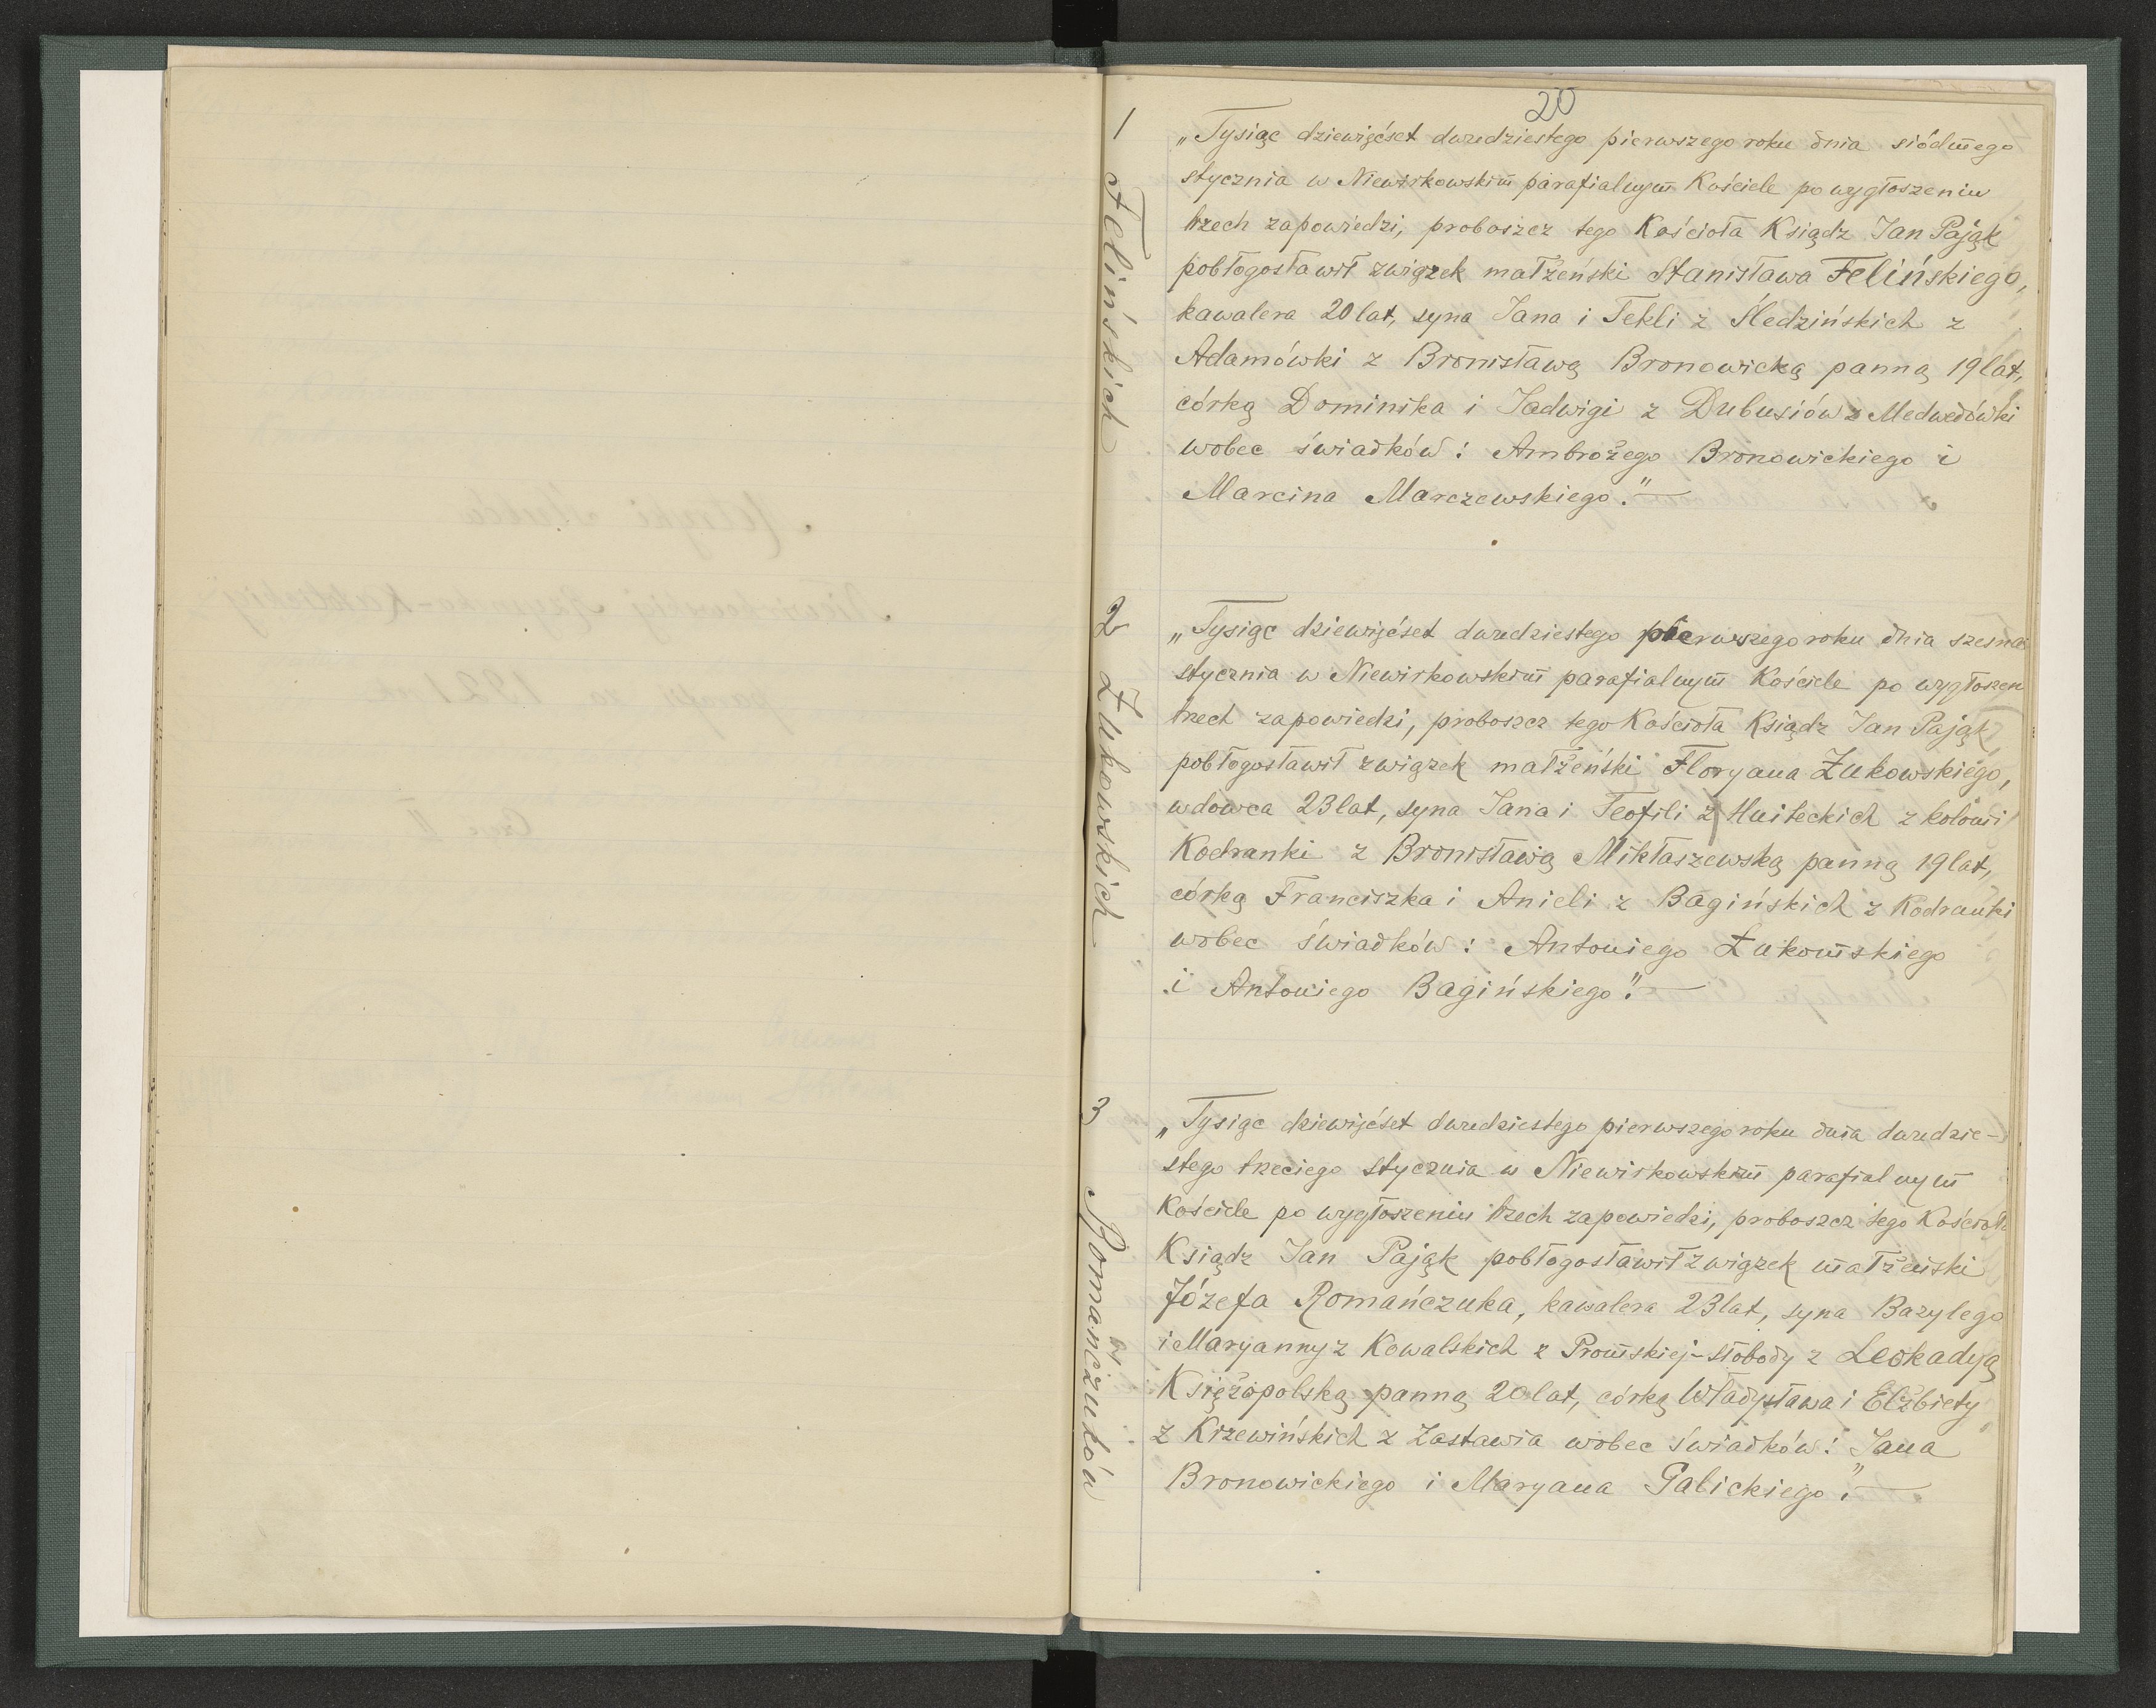 20
1
Felińskich
„Tysiąc dziewięćset dwudziestego pierwszego roku dnia siódmego
stycznia w Niewirkowskim parafialnym Kościele po wygłoszeniu
trzech zapowiedzi, proboszcz tego Kościoła Ksiądz Jan Pająk
pobłogosławił związek małżeński Stanisława Felińskiego,
kawalera 20 lat, syna Jana i Tekli z Śledzińskich z
Adamówki z Bronisławą Bronowicką panną 19 lat,
córką Dominika i Jadwigi z Dubusiów z Medwedówki
wobec świadków: Ambrożego Bronowickiego i
Marcina Marczewskiego."—
2
Żukowskich
„Tysiąc dziewięćset dwudziestego pierwszego roku dnia szesna
stycznia w Niewirkowskim parafialnym Kościele po wygłoszen
trzech zapowiedzi, proboszcz tego Kościoła Ksiądz Jan Pająk
pobłogosławił związek małżeński Floryana Żukowskiego,
wdowca 23 lat, syna Jana i Teofili z Huiteckich z kolonii
Kodranki z Bronisławą Mikłaszewską panną 19 lat,
córką Franciszka i Anieli z Bagińskich z Kodranki
wobec świadków: Antoniego Łukomskiego
i Antoniego Bagińskiego".—
3
Romańczuków
„Tysiąc dziewięćset dwudziestego pierwszego roku dnia dwudzie-
stego trzeciego stycznia w Niewirkowskim parafialnym
Kościele po wygłoszeniu trzech zapowiedzi, proboszcz tego Kościoła
Ksiądz Jan Pająk pobłogosławił związek małżeński
Józefa Romańczuka, kawalera 23 lat, syna Bazylego
i Maryanny z Kowalskich z Promskiej-słobody z Leokadyą
Księżopolską panną 20 lat, córką Władysława i Elżbiety
z Krzewińskich z Zastawia wobec świadków: Jana
Bronowickiego i Maryana Galickiego".—